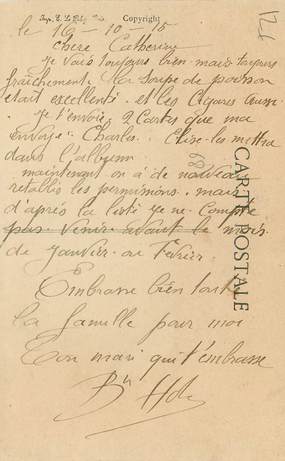 Copyright
le 16-10-15
chere Catherine
je vais toujours bien mais toujours
fraîchement la soupe de poisson
etait excellente. et les cigares aussi.
je t'envoie 2 Cartes que ma
envoyé Charles. Elise les mettra
dans l'album
maintenant on a de nouveau
retablis les permissions. mais
d'après la liste je ne compte
pas venir avant le mois
de janvier ou Fevrier
Embrasse bien toute
la famille pour moi
Ton mari qui t'embrasse
CARTE POSTALE